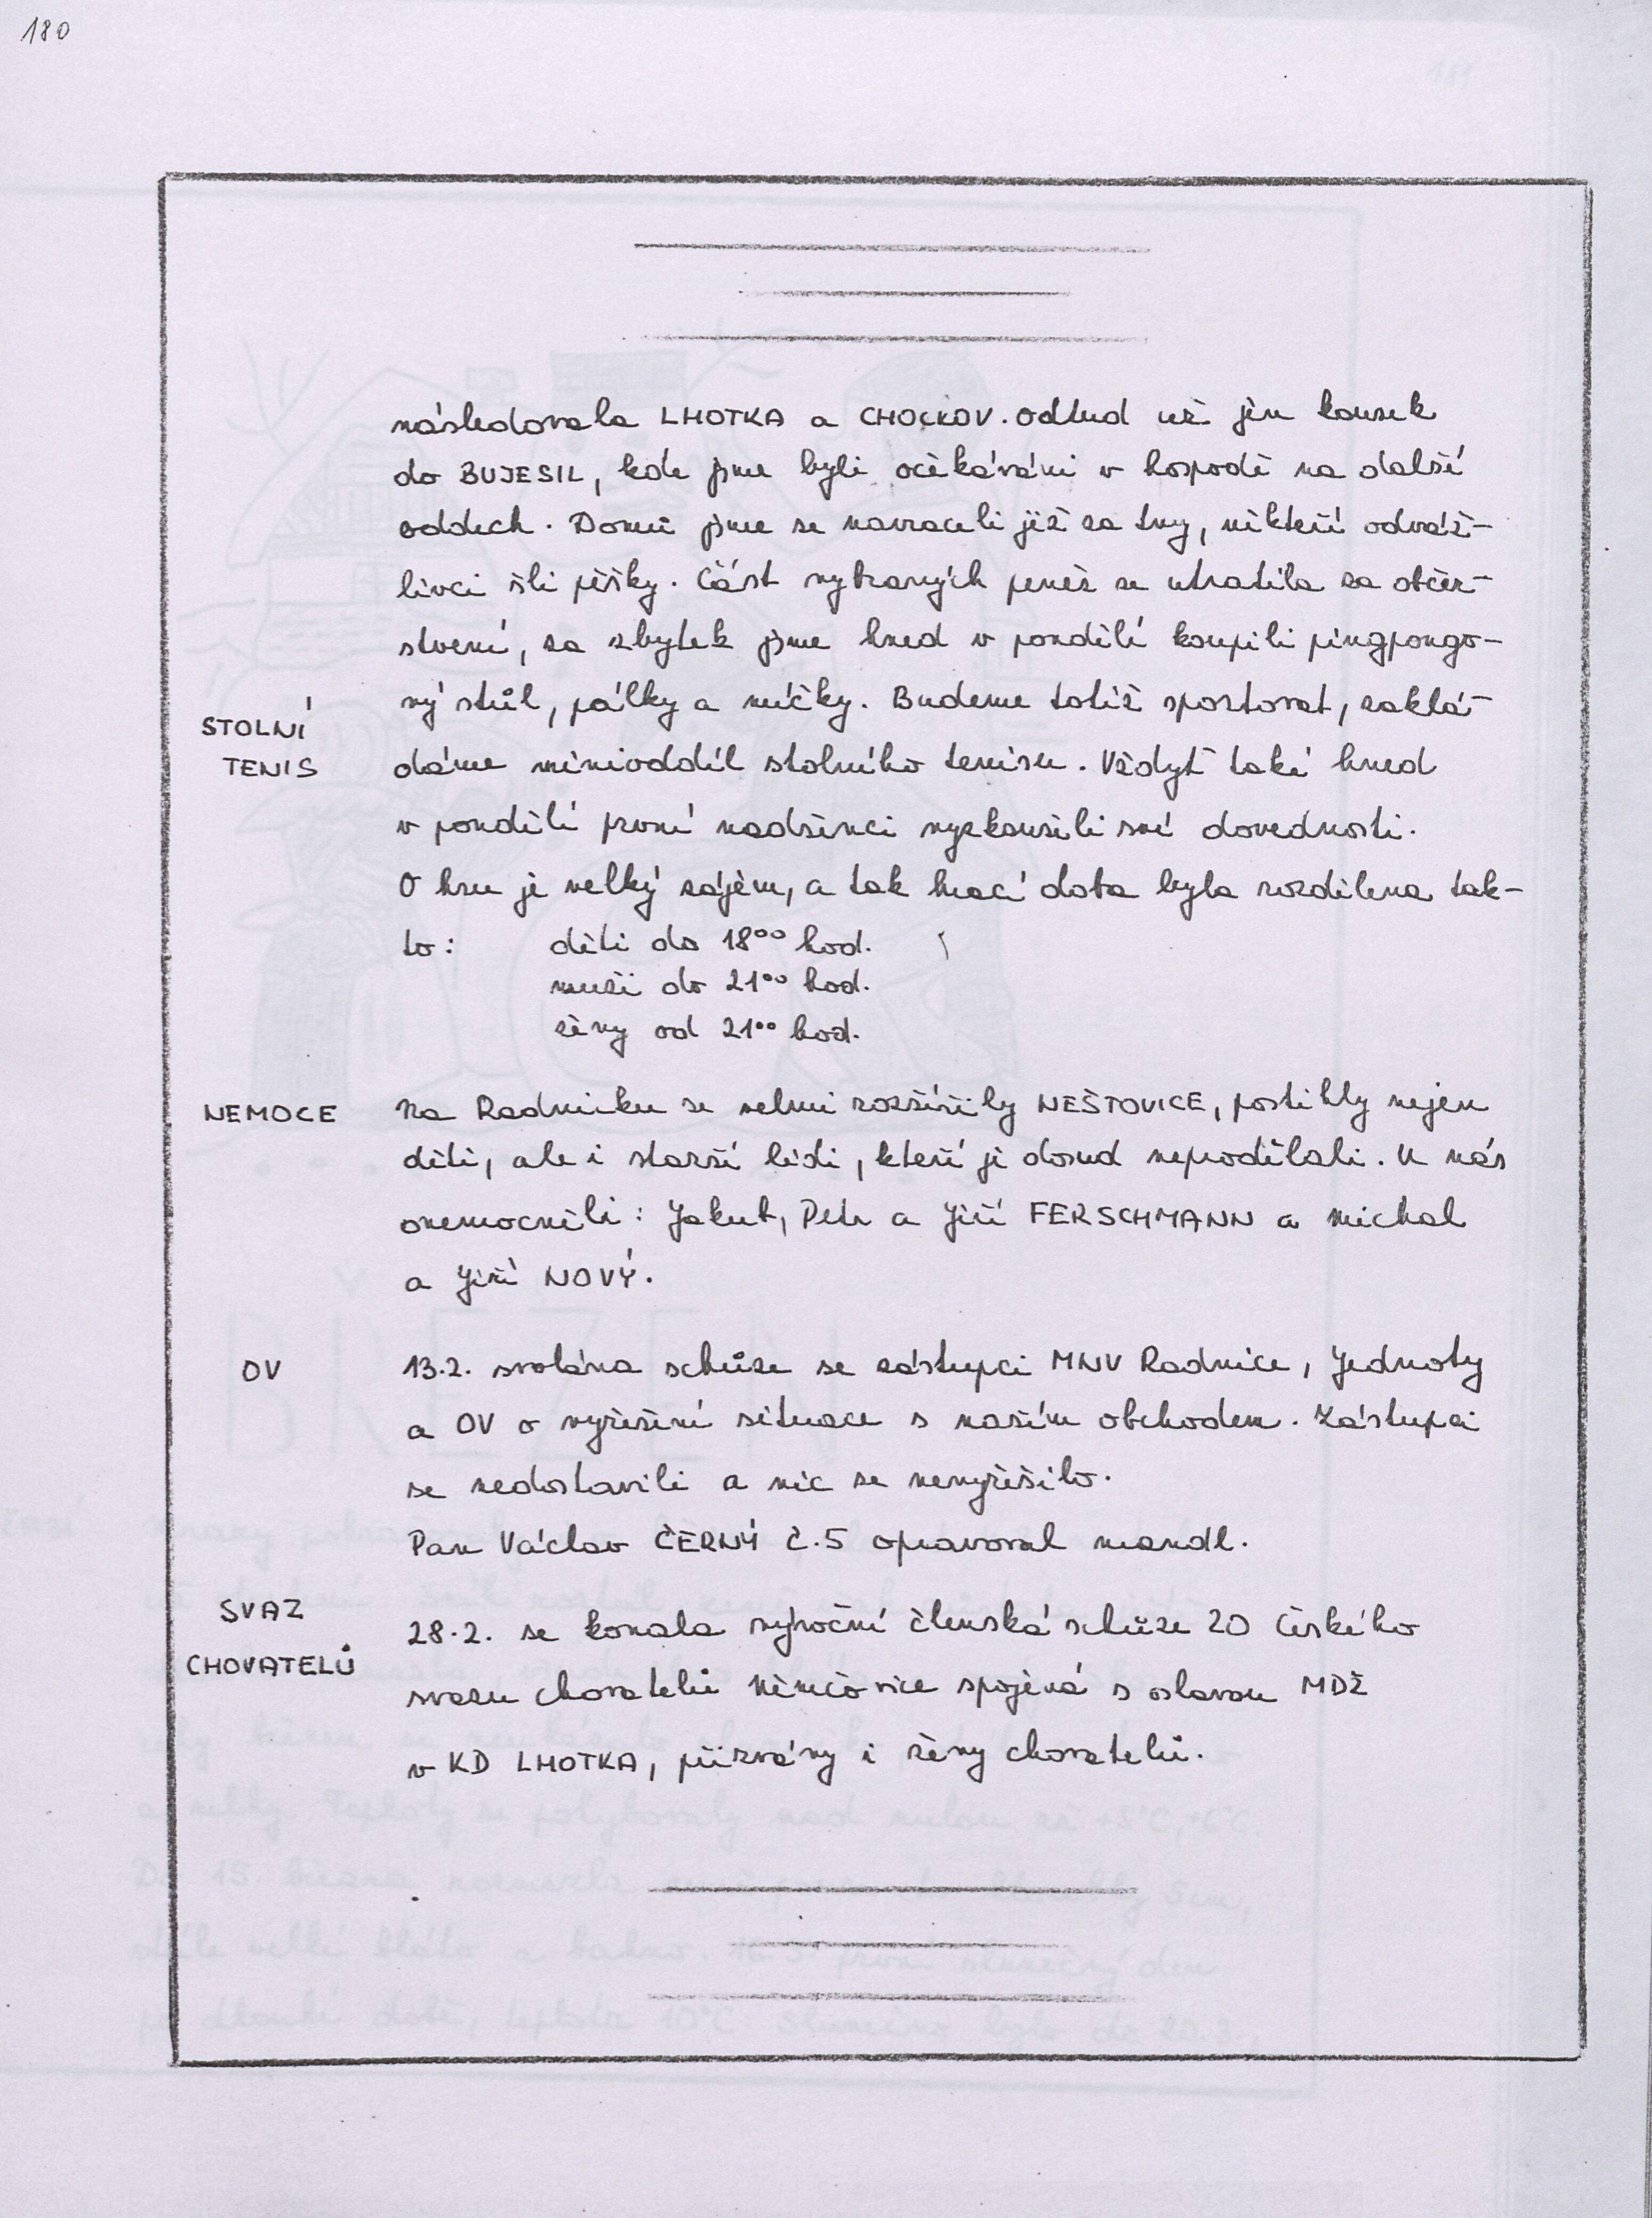 180
následovala LHOTKA a CHOCKOV. Odtud už jen kousek
do BUJESIL, kde jsme byli očekáváni v hospodě na další
oddech. Domů jsme se navraceli již za tmy, někteří odváž-
livci šli pěšky. Část vybraných peněz se utratila za občer-
stvení, za zbytek jsme hned v pondělí koupili pingpongo-
vý stůl, pálky a míčky. Budeme totiž sportovat, zaklá-
STOLNÍ
TENIS
dáme minioddíl stolního tenisu. Vždyť také hned
v pondělí první nadšenci vyzkoušeli své dovednosti.
O hru je velký zájem, a tak hrací doba byla rozdělena tak-
to: děti do 18⁰⁰ hod.
muži do 21⁰⁰ hod.
ženy od 21⁰⁰ hod.
NEMOCE
Na Radnicku se velmi rozšířily NEŠTOVICE, postihly nejen
děti, ale i starší lidi, kteří je dosud neprodělali. U nás
onemocněli: Jakub, Petr a Jiří FERSCHMANN a Michal
a Jiří NOVÝ.
OV
13.2. svolána schůze se zástupci MNV Radnice, Jednoty
a OV o vyřešení situace s naším obchodem. Zástupci
se nedostavili a nic se nevyřešilo.
Pan Václav ČERNÝ č.5 opravoval mandl.
SVAZ
CHOVATELŮ
28.2. se konala výroční členská schůze ZO Českého
svazu chovatelů Němčovice spojená s oslavou MDŽ
v KD LHOTKA, přizvány i ženy chovatelů.